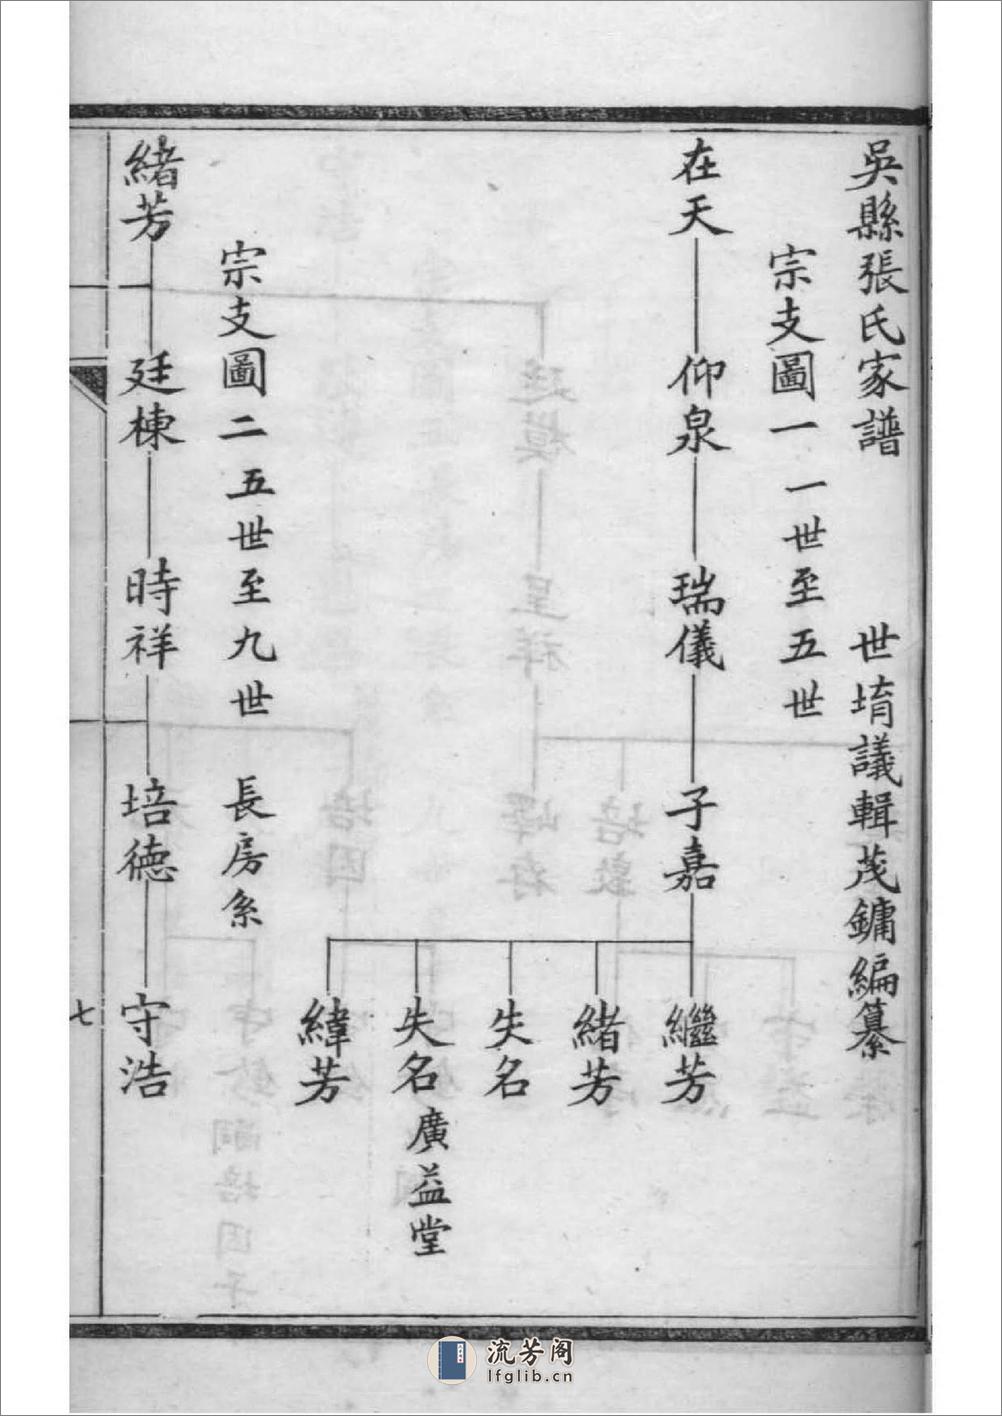 吳縣張氏家譜　世堉議輯茂鏞編纂
宗支圖一　一世至五世
在天　仰泉　瑞儀　子嘉　繼芳
緒芳
失名
失名　廣益堂
緯芳
宗支圖二　五世至九世　長房系
緒芳　廷棟　時祥　培德　守浩
七
流芳阁
lfglib.cn